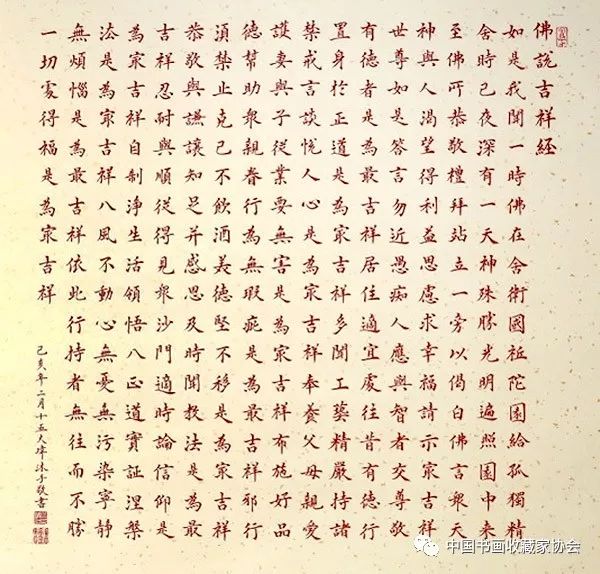 佛說吉祥經
如是我聞一時佛在舍衛國祗陀園給孤獨精
舍時已夜深有一天神殊勝光明遍照園中来
至佛所恭敬禮拜站立一旁以偈白佛言衆天
神與人渴望得利益思慮求幸福請示冣吉祥
世尊如是答言勿近愚痴人應與智者交尊敬
有德者是為最吉祥居住適宜處往昔有德行
置身於正道是為冣吉祥多聞工藝精嚴持諸
禁戒言談悅人心是為冣吉祥奉養父母親愛
護妻與子從業要無害是為冣吉祥布施好品
德幫助衆親眷行為無瑕疵是為最吉祥邪行
須禁止克己不飲酒美德堅不移是為冣吉祥
恭敬與謙讓知足并感恩及時聞教法是為最
吉祥忍耐與順從得見衆沙門適時論信仰是
為冣吉祥自制淨生活領悟八正道實証涅槃
法是為冣吉祥八風不動心無憂無污染寧靜
無煩惱是為最吉祥依此行持者無往而不勝
一切處得福是為冣吉祥
己亥年二月十五大沐手敬書
中国书画收藏家协会